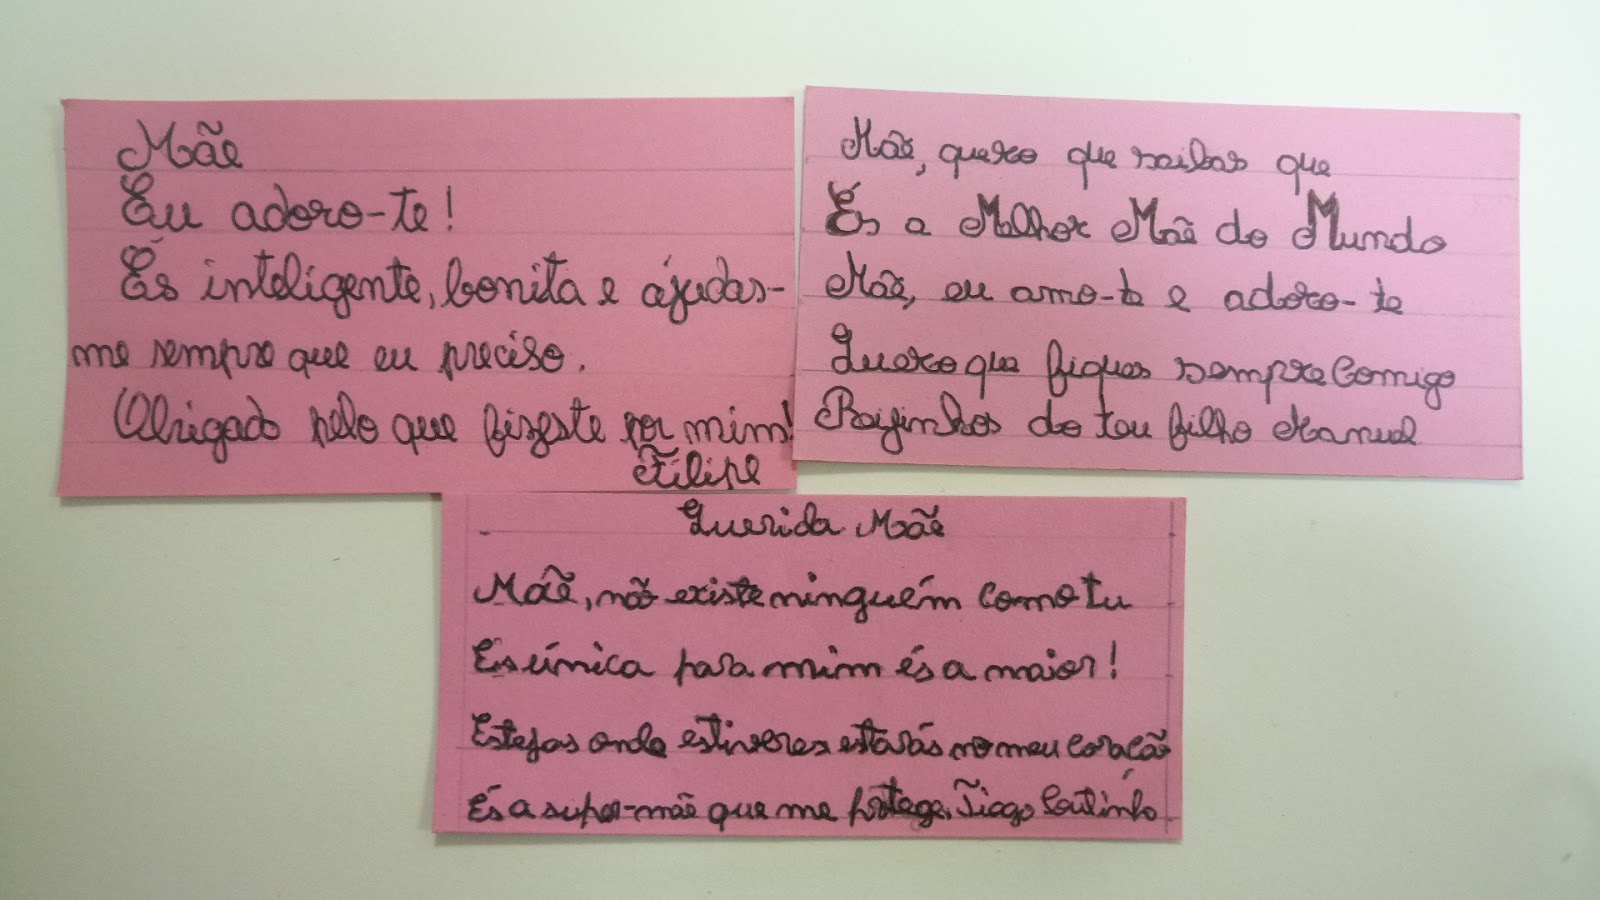 Mãe
Eu adoro-te!
És inteligente, bonita e ájudas-
me sempre que eu preciso.
Obrigado pelo que fizeste por mim!
Filipe
Mãe, quero que saibas que
És a Melhor Mãe do Mundo
Mãe, eu amo-te e adoro-te
Quero que fiques sempre Comigo
Beijinhos do teu filho Manuel
Querida Mãe
Mãe, não existe ninguém como tu
És única para mim és a maior!
Estejas onde estiveres estarás no meu coração
És a super-mãe que me protege, Tiago Coutinho